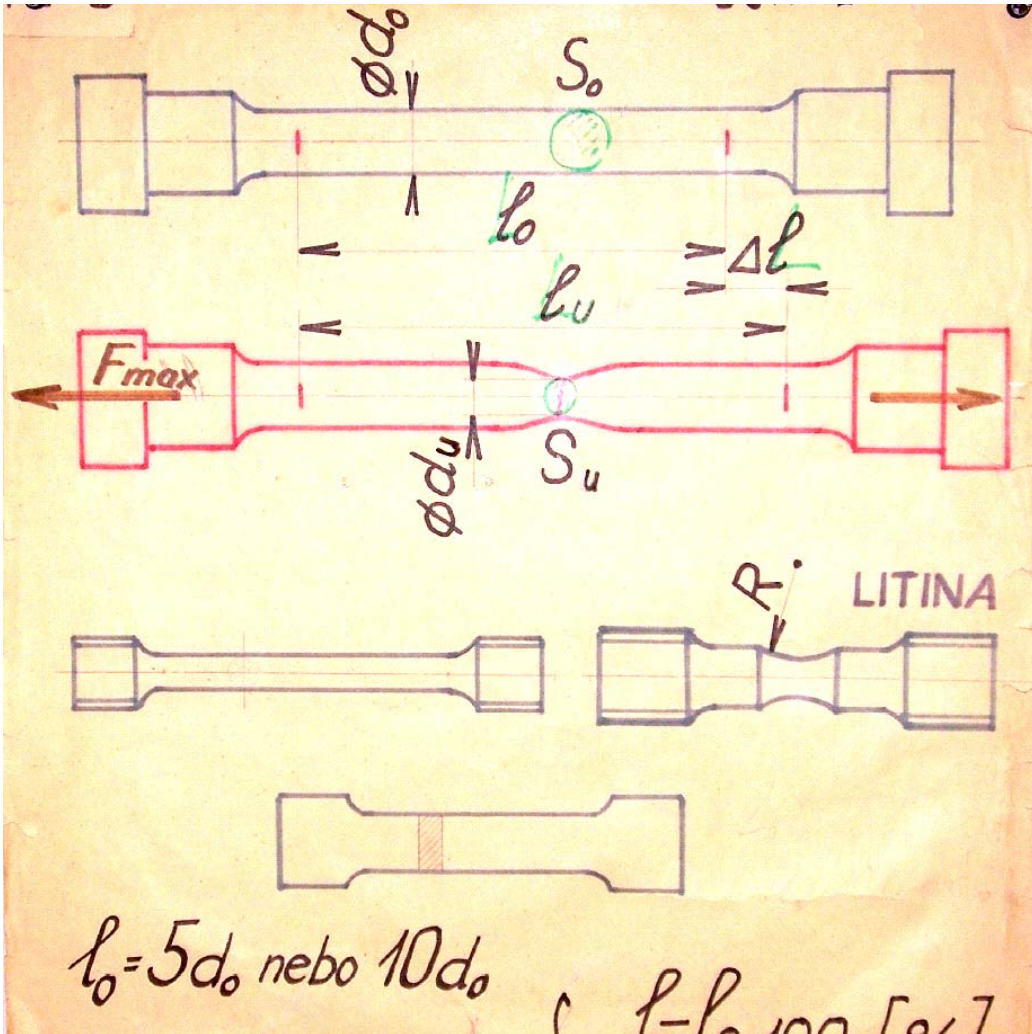 ød₀
S₀
l₀
Δl
lᵤ
Fmax
ødᵤ
Sᵤ
R
LITINA
l₀=5d₀ nebo 10d₀